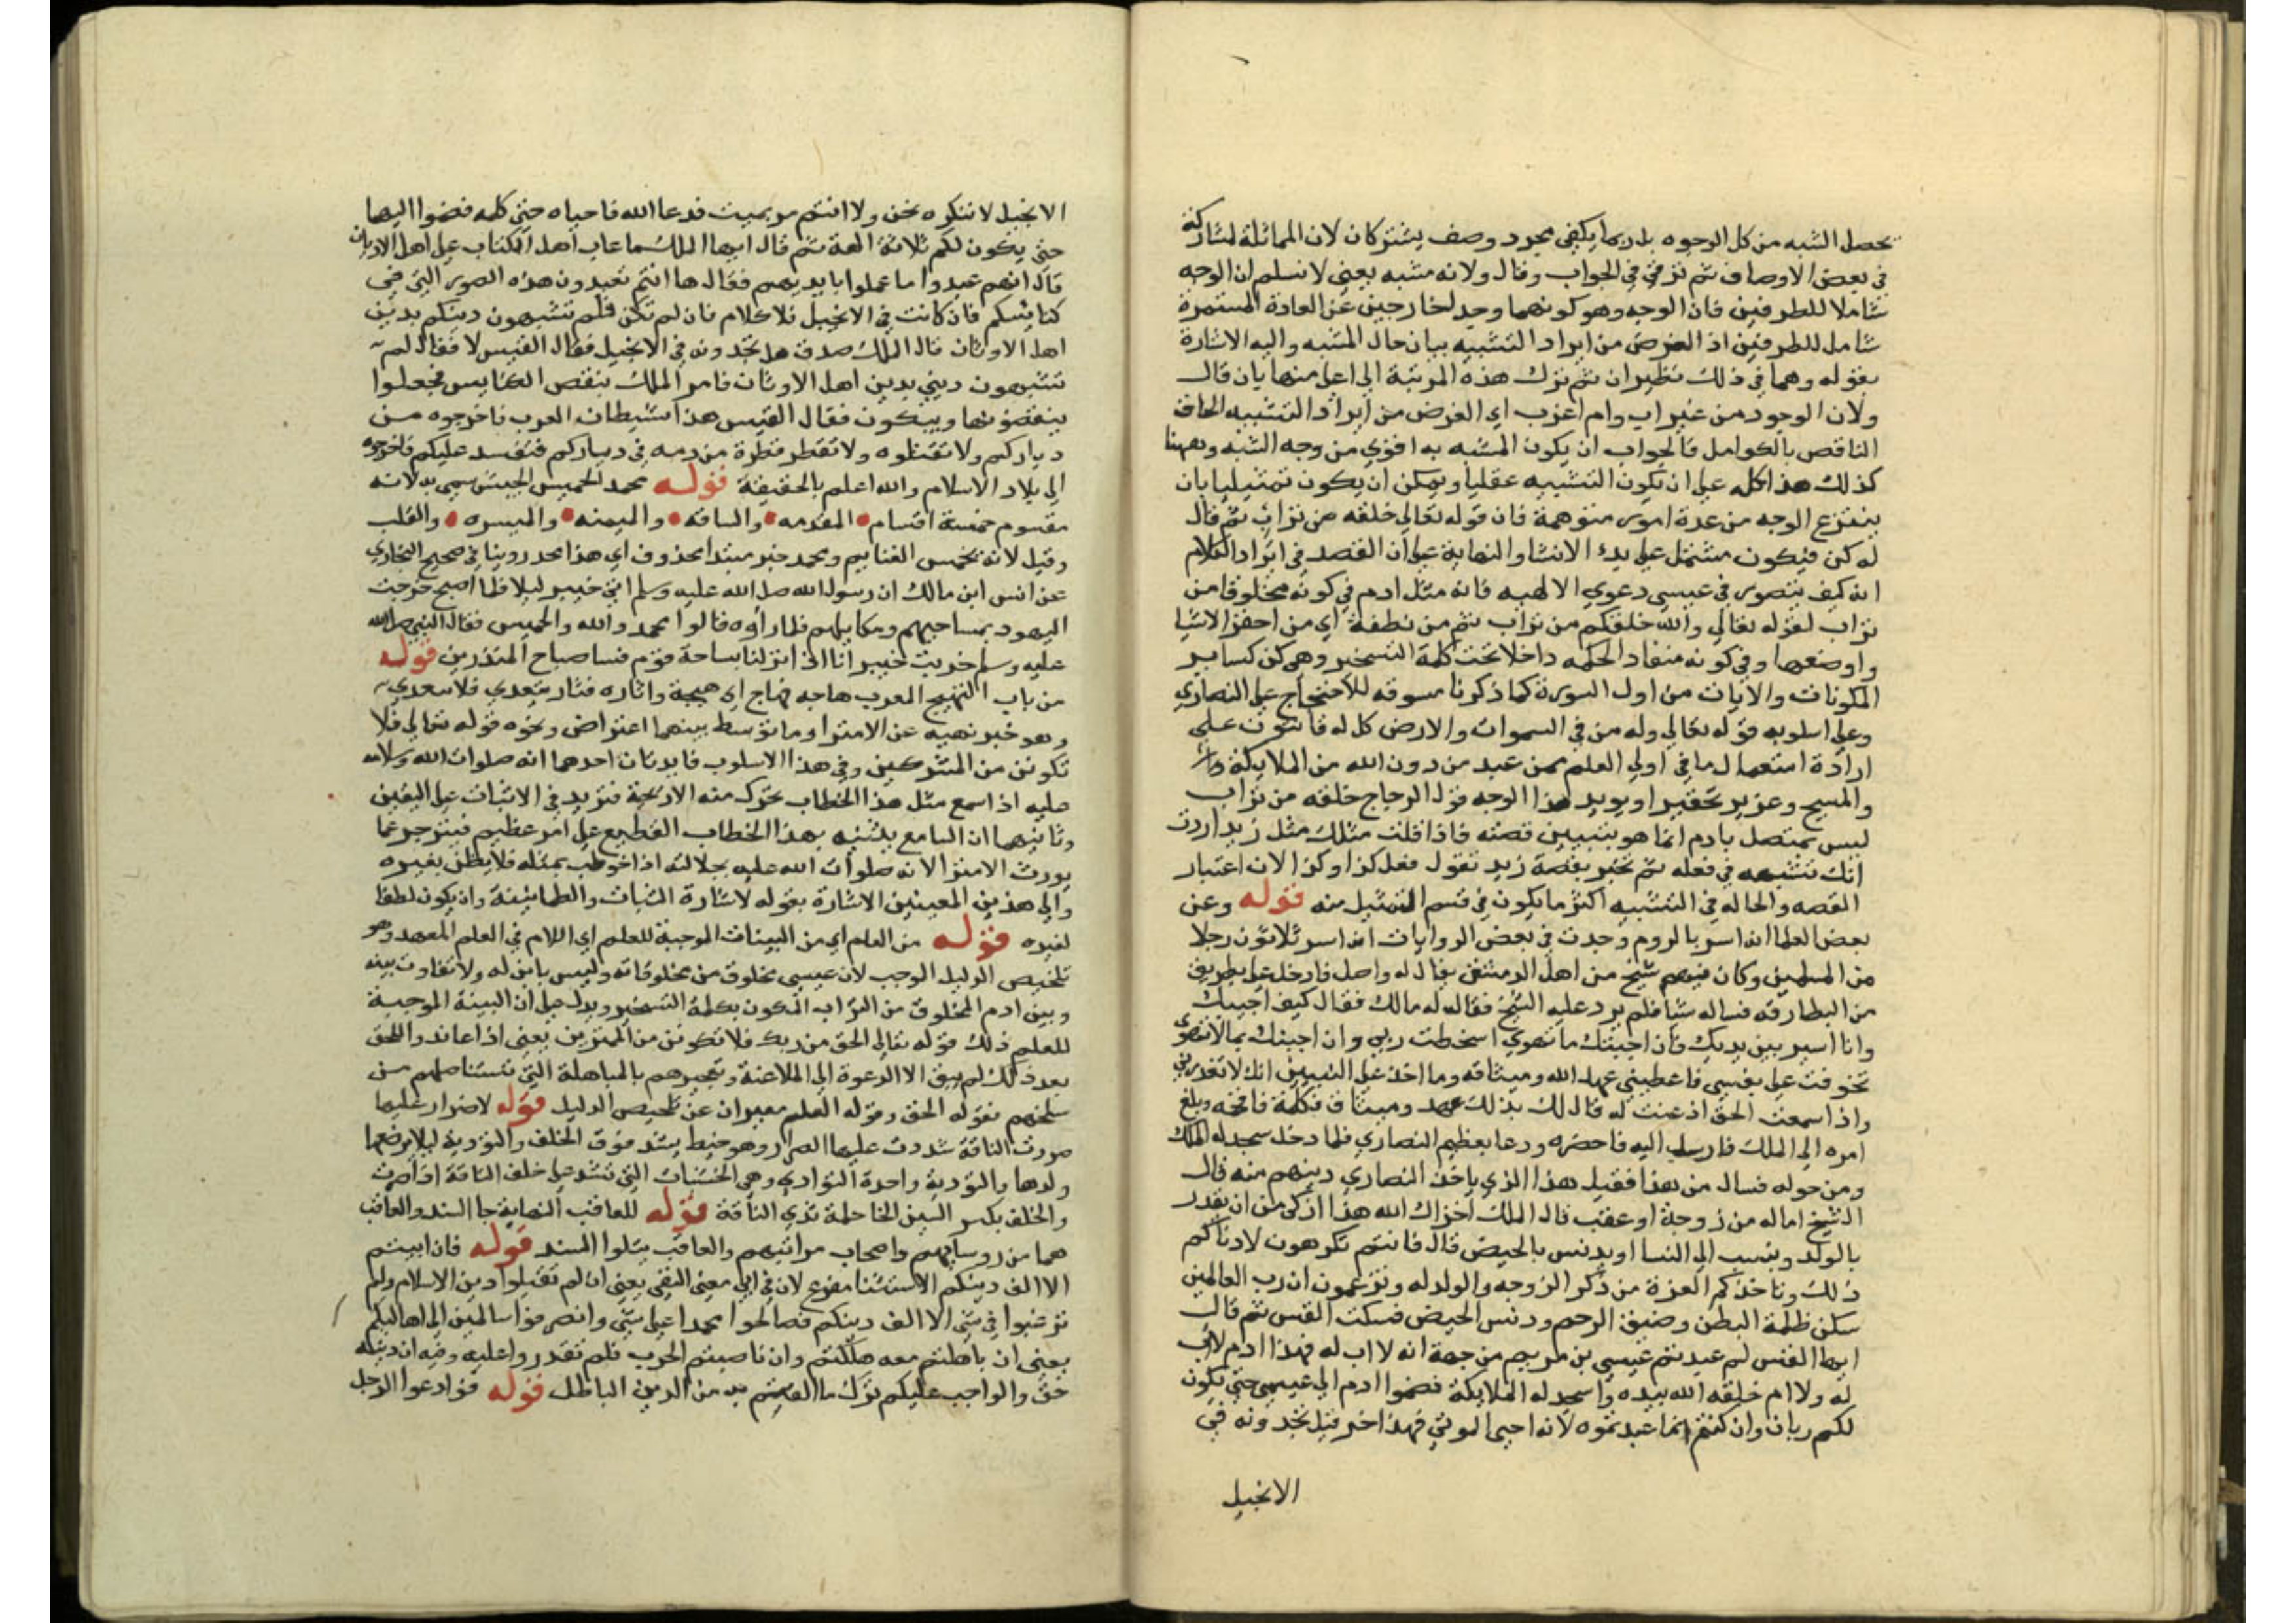 يحصل الشبه من كل الوجوه بل ربما يكفي مجرد وصف يشتركان لان المماثلة لمشاركة
في بعض الاوصاف ثم ترقى في الجواب وقال ولانه مشبه يعني لا نسلم ان الوجه
شاملا للطرفين فان الوجه وهو كونهما وجدا خارجين عن العادة المستمرة
شامل للطرفين اذ الغرض من ايراد التشبيه بيان حال المشبه واليه الاشارة
بقوله وهما في ذلك نظيران ثم ترك هذه المرتبة الى اعلى منها بان قال
ولان الوجود من غير اب وام اغرب اي الغرض من ايراد التشبيه الحاق
الناقص بالكوامل فالجواب ان يكون المشبه به اقوى من وجه الشبه وههنا
كذلك هذا كله على ان يكون التشبيه عقليا ويمكن ان يكون تمثيليا بان
ينتزع الوجه من عدة امور متوهمة فان قوله تعالى خلقه من تراب ثم قال
له كن فيكون مشتمل على بدء الانشا والنهاية على ان القصد في ايراد الكلام
انه كيف يتصور في عيسى دعوى الالهيه فانه مثل ادم في كونه مخلوقا من
تراب لقوله تعالى والله خلقكم من تراب ثم من نطفة اي من احقر الاشيا
واوضعها وفي كونه منقاد الحكمه داخلا تحت كلمة التسخير وهي كن كساير
المكونات والايات من اول السورة كما ذكرنا مسوقه للاحتجاج على النصارى
وعلى اسلوبه قوله تعالى وله من في السموات والارض كل له قانتون على
ارادة استعمال ما في اولي العلم ممن عبد من دون الله من الملايكة
والمسيح وعزير تحقيرا ويويد هذا الوجه قول الزجاج خلقه من تراب
ليس بمتصل بادم انما هو بتبيين قصته فاذا قلت مثلك مثل زيد اردت
انك تشبهه في فعله ثم تخبر بقصة زيد تقول فعل كذا وكذا لان اعتبار
القصه والحاله في التشبيه اكثر ما يكون في قسم التمثيل منه قوله وعن
بعض العلما انه اسر بالروم وجدت في بعض الروايات انه اسر ثلاثون رجلا
من المسلمين وكان فيهم شيخ من اهل الدمشق يقال له واصل فادخل على بطريق
من البطارقه فساله شيا فلم يرد عليه الشيخ فقال له مالك فقال كيف اجيبك
وانا اسير بين يديك فان اجبتك ما تهوى اسخطت ربي وان اجبتك بما لا تهوى
تخوفت على نفسي فاعطيني عهد الله وميثاقه وما اخذ على النبيين انك لا تغدر بي
واذا سمعت الحق اذعنت له قال لك بذلك عهد وميثاق فكلمه فافحمه وبلغ
امره الى الملك فارسل اليه فاحضره ودعا بعظيم النصارى فلما دخل سجد له الملك
ومن حوله فسال من هذا فقيل هذا الذي ياخذ النصارى دينهم منه قال
الشيخ اماله من زوجة او عقب قال الملك اخزاك الله هذا ازكى من ان يقذر
بالولد وينسب الى النسا او يدنس بالحيض قال فانتم تكرهون لادناكم
ذلك وتاخذكم العزة من ذكر الزوجه والولد له وتزعمون ان رب العالمين
سكن ظلمة البطن وضيق الرحم ودنس الحيض فسكت القس ثم قال
ايها القس لم عبدتم عيسى بن مريم من جهة انه لا اب له فهذا ادم لا اب
له ولا ام خلقه الله بيده واسجد له الملايكة فضموا ادم الى عيسى حتى يكون
لكم ربان وان كنتم انما عبدتموه لانه احيى الموتى فهذا حزقيل تجدونه في
الانجيل
الانجيل لا ننكره نحن ولا انتم مر بميت فدعا الله فاحياه حتى كلمه فضموا اليهما
حتى يكون لكم ثلاثة الهة ثم قال ايها الملك بما عاب اهل الكتاب على اهل الاديان
قال انهم عبدوا ما عملوا بايديهم فقال ها انتم تعبدون هذه الصور التي في
كنايسكم فان كانت في الانجيل فلا كلام فان لم تكن فلم تشبهون دينكم بدين
اهل الاوثان قال الملك صدق هل تجدونه في الانجيل فقال القس لا فقال لم
تشبهون ديني بدين اهل الاوثان فامر الملك بنقض الكنايس فجعلوا
ينقضونها ويبكون فقال القس هذا شيطان العرب فاخرجوه من
دياركم ولا تقتلوه ولا تقطر قطرة من دمه في دياركم فتفسد عليكم فاخرجوه
الى بلاد الاسلام والله اعلم بالحقيقة قوله محمد الخميس الجيش سمي به لانه
مقسوم خمسة اقسام المقدمه والساقه والميمنه والميسره والقلب
وقيل لانه تخمس الغنايم ومحمد خبر مبتدا محذوف اي هذا محمد روينا في صحيح البخاري
عن انس ابن مالك ان رسول الله صلى الله عليه وسلم اتى خيبر ليلا فلما اصبح خرجت
اليهود بمساحيهم ومكاتلهم فلما راوه قالوا محمد والله والخميس فقال النبي صلى الله
عليه وسلم خربت خيبر انا اذا نزلنا بساحة قوم فسا صباح المنذرين قوله
من باب التهييج المعرب هاجه فهاج اي هيجه واثاره فثار يتعدى فلا يتعدى
وهو خبر نهيه عن الامترا وما توسط بينهما اعتراض ونحوه قوله تعالى فلا
تكونن من المشركين وفي هذا الاسلوب فايدتان احدهما انه صلوات الله وسلامه
عليه اذا سمع مثل هذا الخطاب تحرك منه الاريحية فتزيد في الاثبات على اليقين
وثانيهما ان السامع يتنبه بهذا الخطاب الفظيع على امر عظيم فينزجر عما
يورث الامترا لانه صلوات الله عليه بجلالته اذا خوطب بمثله فلا يظن بغيره
والى هذين المعنيين الاشارة بقوله لاشارة الثبات والطمانينة وان يكون لطفا
لغيره قوله من العلم اي من البينات الموجبة للعلم اي اللام في العلم المعهد وهو
تلخيص الدليل الموجب لان عيسى مخلوق من مخلوقاته وليس بابن له ولا تفاوت بينه
وبين ادم المخلوق من التراب المكون بكلمة التسخير ويدل على ان البينة الموجبة
للعلم ذلك قوله تعالى الحق من ربك فلا تكونن من الممترين يعني اذا عاندوا للحق
بعد ذلك لم يبق الا الدعوة الى الملاعنة وتعجيزهم بالمباهلة التي تستاصلهم من
سنخهم فقوله الحق وقوله العلم معبران عن تلخيص الدليل قوله لا ضرار عليها
صررت الناقة شددت عليها الصرار وهو خيط يشد فوق الخلف والتودية ليلا يرضعها
ولدها والتودية واحدة التوادي وهي الخشبات التي تشد على خلف الناقة اذا صرت
والخلف بكسر السين الخا حلمة ثدي الناقة قوله للعاقب النهاية جا السيد والعاقب
هما من روسايهم واصحاب مراتبهم والعاقب يتلوا السيد قوله فان ابيتم
الا الف دينكم الاستثنا مفرغ لان في ابى معنى النفي يعني ان لم تقبلوا دين الاسلام ولم
ترغبوا في شي الا الف دينكم فصالحوا محمدا على شي وانصرفوا سالمين الى اهاليكم
يعني ان باهلتم معه هلكتم وان ناصبتم الحرب فلم تقدروا عليه وفيه ان دينه
حق والواجب عليكم ترك ما الفيتم به من الدين الباطل قوله فوادعوا الرجل